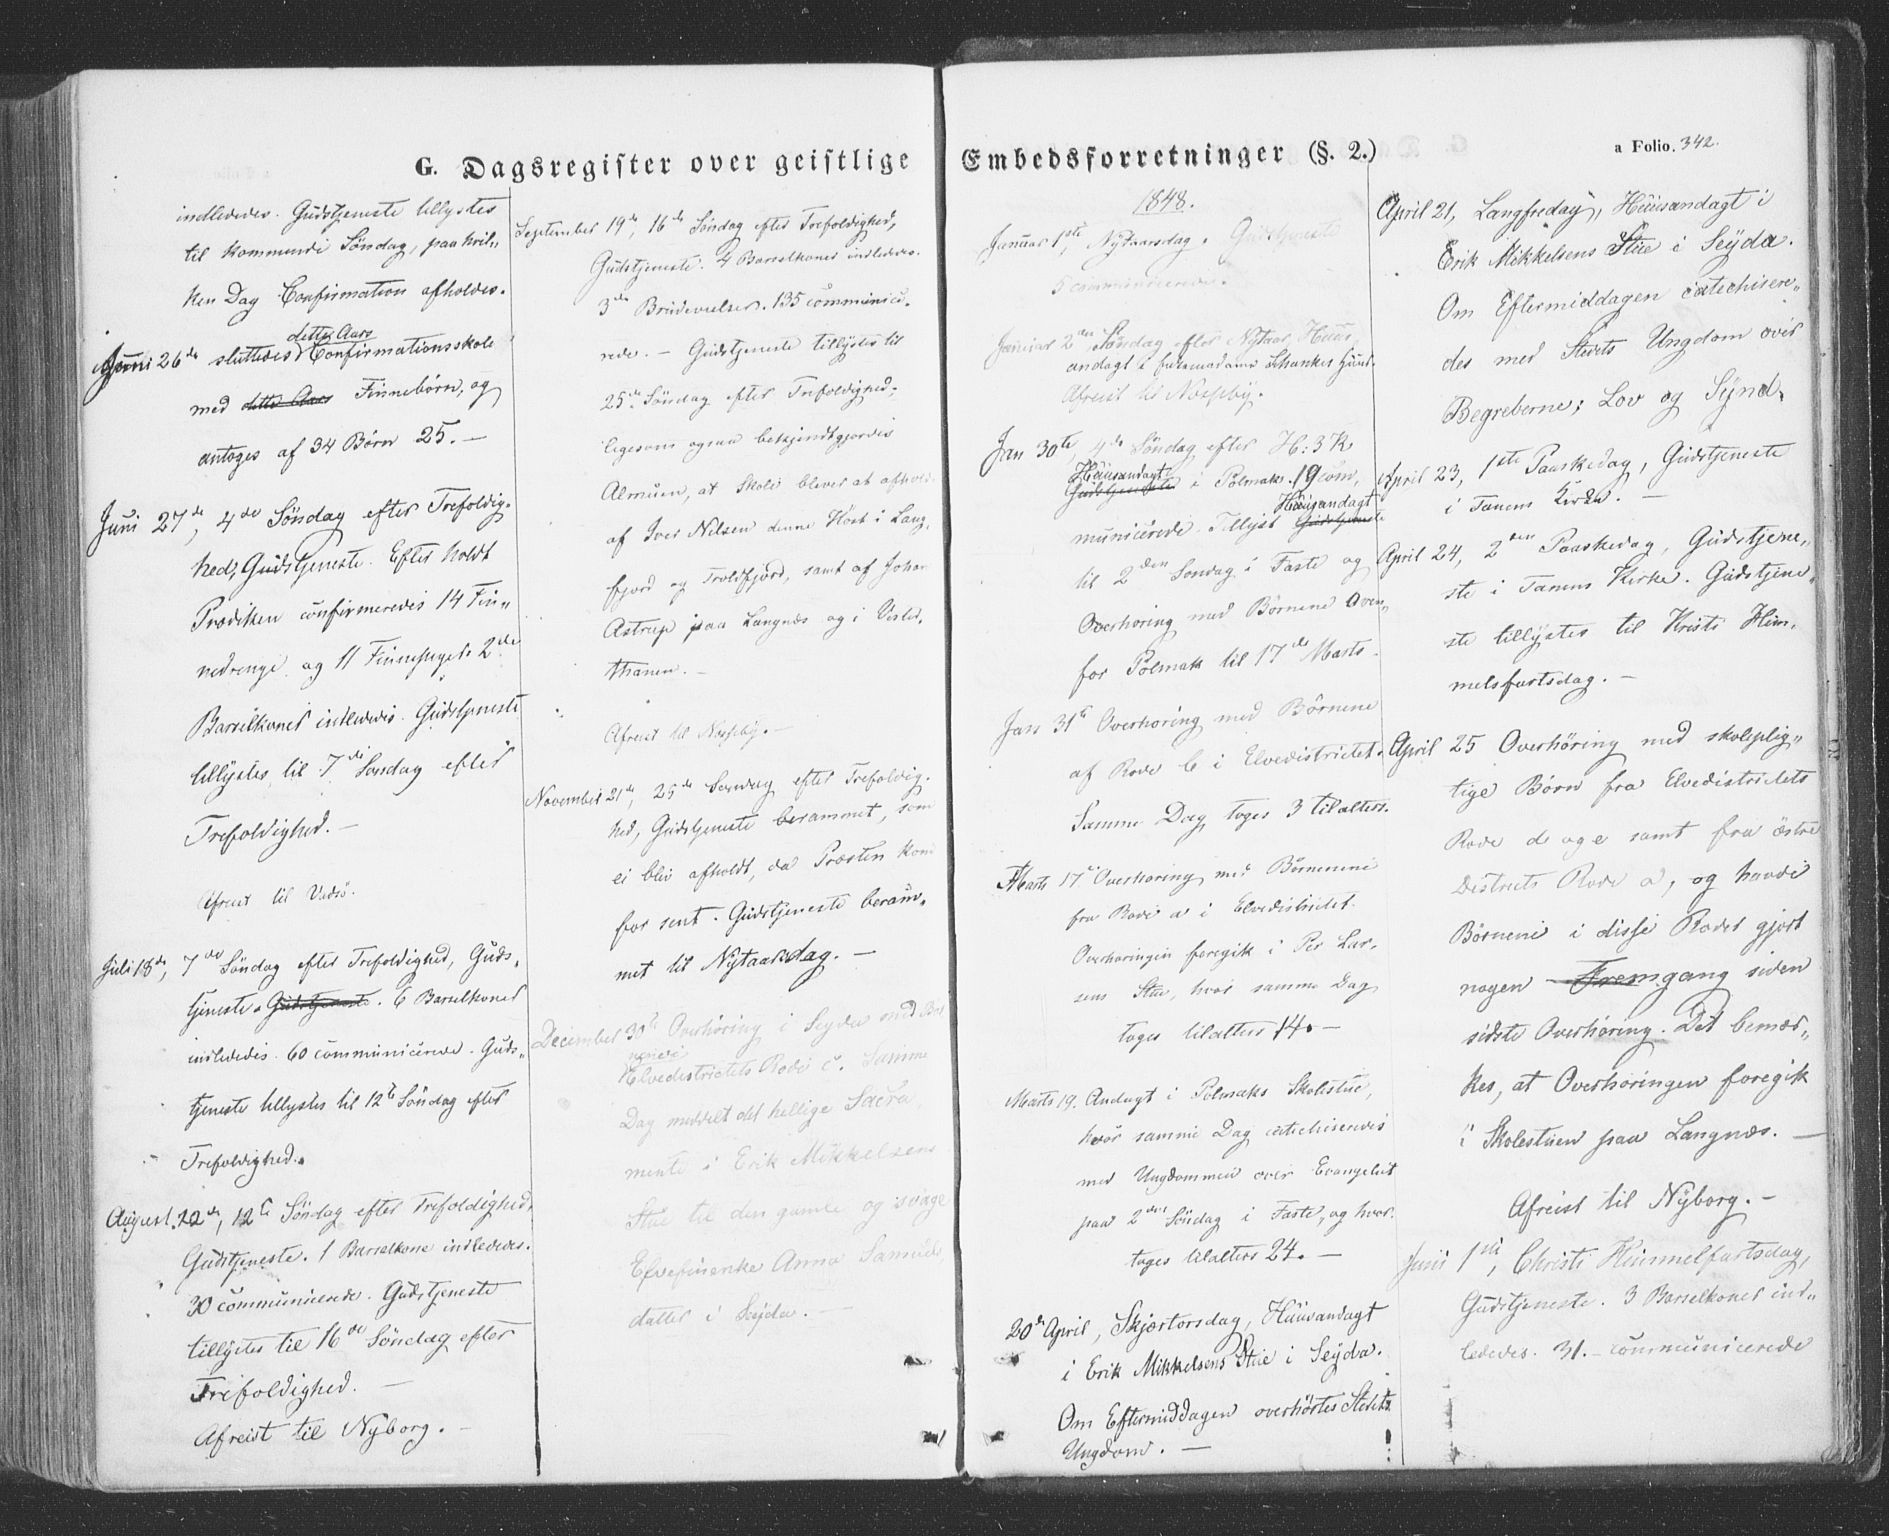 G. Dagsregister over geistlige
indlededes. Gudstjeneste tillystes
til kommende Søndag, paa hvil„
ken Dag Confirmation afholdes.
dette Aars
Juni 26de sluttedes Confirmationsskole
med dette Aars Finnebørn, og
antoges af 34 Børn 25. —
Juni 27de, 4de Søndag efter Trefoldig„
hed, Gudstjeneste. Efter holdt
Prædiken confirmeredes 14 Fin„
nedrenge og 11 Finnepiger. 2de
Barselkoner indlededes. Gudstjeneste
tillystes til 7de Søndag efter
Trefoldighed. —
Afreist til Vadsø.
Juli 18de, 7de Søndag efter Trefoldighed, Guds„
tjeneste. Gudstjeneste. 6 Barselkoner
indlededes. 60 communicerede. Guds„
tjeneste tillystes til 12te Søndag efter
Trefoldighed.
August 22de, 12te Søndag efter Trefoldighed,
Gudstjeneste. 1 Barselkone indlededes.
30 communicerede. Gudstjeneste
tillystes til 16de Søndag efter
Trefoldighed. —
Afreist til Nyborg. —
September 19de, 16de Søndag efter Trefoldighed,
Gudstjeneste. 4 Barselkoner indlededes.
3de Brudevielser. 135 communice„
rede. — Gudstjeneste tillystes til
25de Søndag efter Trefoldighed,
ligesom ogsaa bekjendtgjordes
Almuen, at Skole blever at afhold
af Iver Nilsen denne Høst i Lang„
fjord og Troldfjord, samt af Johan
Astrup paa Langnæs og i Vester„
thanen. —
Afreist til Nesseby. —
November 21de, 25de Søndag efter Trefoldig„
hed, Gudstjeneste berammet, som
ei blev afholdt, da Præsten kom
for sent. Gudstjeneste beram„
met til Nytaarsdag. —
December 30te Overhøring i Seyda med Bør
nene i
Elvedistrictets Rode c. Samme
Dag meddelt det hellige Sacra„
mente i Erik Mikkelsens
Stue til den gamle og svage
Elvefinenke Anna Samuels
datter i Seyda. —
Embedsforretninger (§. 2.)
a Folio. 342.
1848.
Januar 1ste, Nytaarsdag. Gudstjeneste
5 communicerede.
Januar 2den, Søndag efter Nytaar, Huus„
andagt i Madame Schankes Huus.
Afreist til Nesseby.
Jan 30te 4de Søndag efter H: 3 K.
Huusandagt
Gudstjeneste i Polmak. 19 com„
Huusandagt
municerede. Tillyst Gudstjeneste
til 2den Søndag i Faste og
Overhøring med Børnene oven„
for Polmak til 17de Marts.
Jan 31te Overhøring med Børnene
af Rode b i Elvedistrictet.
Samme Dag toges 3 tilalters.
Marts 17de Overhøring med Børnene
fra Rode a i Elvedistrictet.
Overhøringen foregik i Per Lar„
sens Stue, hvor samme Dag
toges tilalters 14. —
Marts 19. Andagt i Polmaks Skolestue,
hvor samme Dag catechiseredes
med Ungdommen over Evangeliet
paa 2den Søndag i Faste, og hvor
toges tilalters 24. —
20de April, Skjærtorsdag, Huusandagt
i Erik Mikkelsens Stue i Seyda.
Om Eftermiddagen overhørtes Stedets
Ungdom. —
April 21, Langfredag, Huusandagt i
Erik Mikkelsens Stue i Seyda.
Om Eftermiddagen catechisere„
des med Stedets Ungdom over
Begreberne: Lov og Synd.
April 23, 1ste Paaskedag, Gudstjeneste
i Tanens Kirke. —
April 24, 2den Paaskedag, Gudstjene„
ste i Tanens Kirke. Gudstjene„
ste tillystes til Kristi Him„
melsfartsdag. —
April 25 Overhøring med skoleplig„
tige Børn fra Elvedistrictets
Rode d og e samt fra østre
Districts Rode a, og havde
Børnene i disse Roder gjort
nogen Fremgang siden
sidste Overhøring. Det bemær„
kes, at Overhøringen foregik
i Skolestuen paa Langnæs. —
Afreist til Nyborg. —
Juni 1ste, Christi Himmelfartsdag,
Gudstjeneste. 3 Barselkoner ind„
lededes. 31. — communicerede